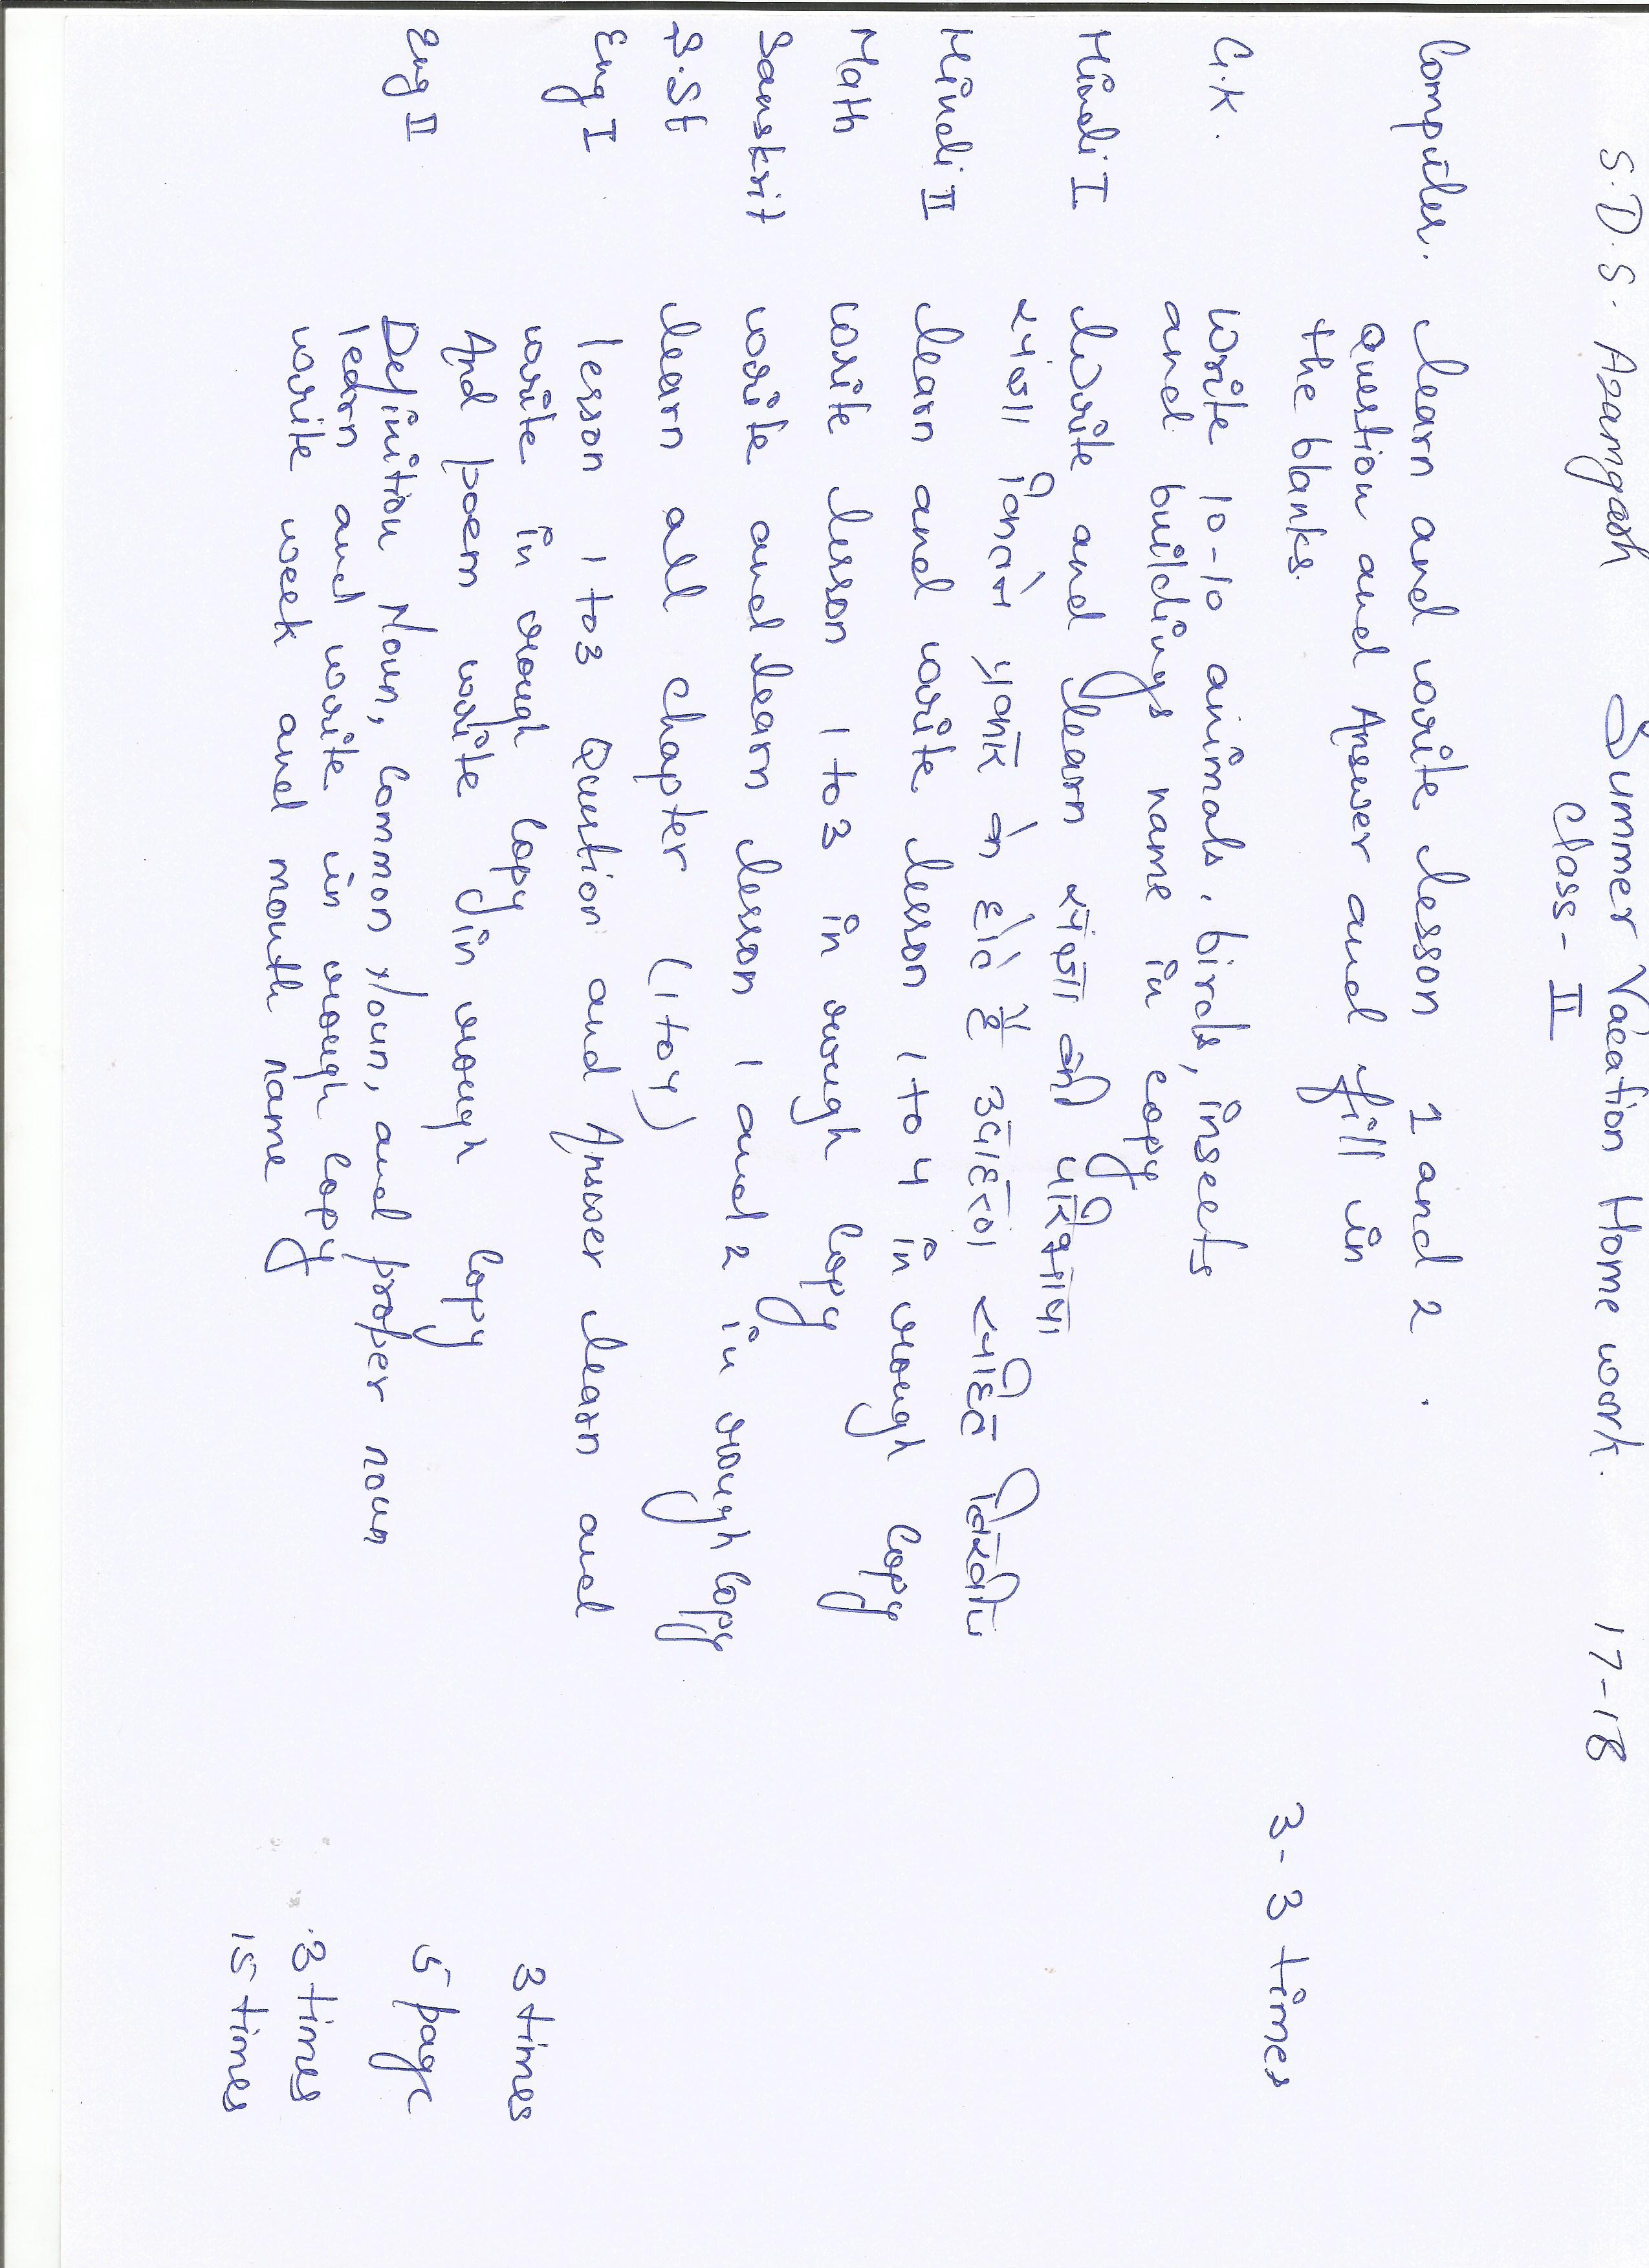 S.D.S. Azamgarh Summer Vacation Home work. 17-18
Class - II
Computer. learn and write lesson 1 and 2.
Question and Answer and fill in
the blanks. 3-3 times
G.K. Write 10-10 animals, birds, insects
and buildings name in copy
Hindi I Write and learn संज्ञा की परिभाषा
संज्ञा कितने प्रकार के होते है उदाहरण सहित लिखीए
Hindi II learn and write lesson 1 to 4 in rough copy
Math write lesson 1 to 3 in rough copy
Sanskrit write and learn lesson 1 and 2 in rough copy
S.St learn all chapter (1 to 4)
Eng I lesson 1 to 3 Question and Answer learn and
write in rough copy 3 times
And poem write in rough copy 5 page
Eng II Definition Noun, Common Noun, and proper noun
learn and write in rough copy 3 times
write week and month name 15 times